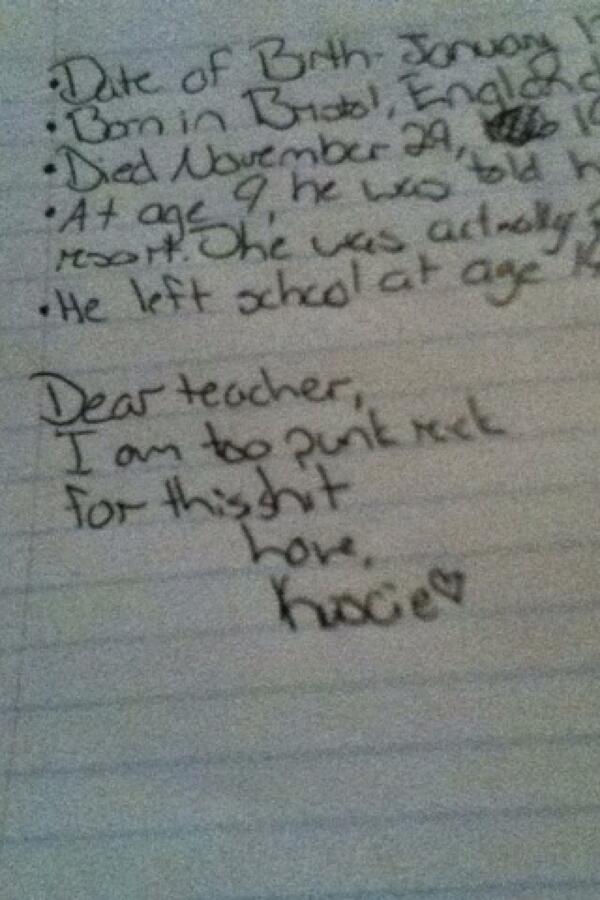 •Date of Birth- January 1
•Born in Bristol, England
•Died November 29, 19
•At age 9, he was told h
resort. She was actually
•He left school at age 14
Dear teacher,
I am too punk rock
for this shit
Love,